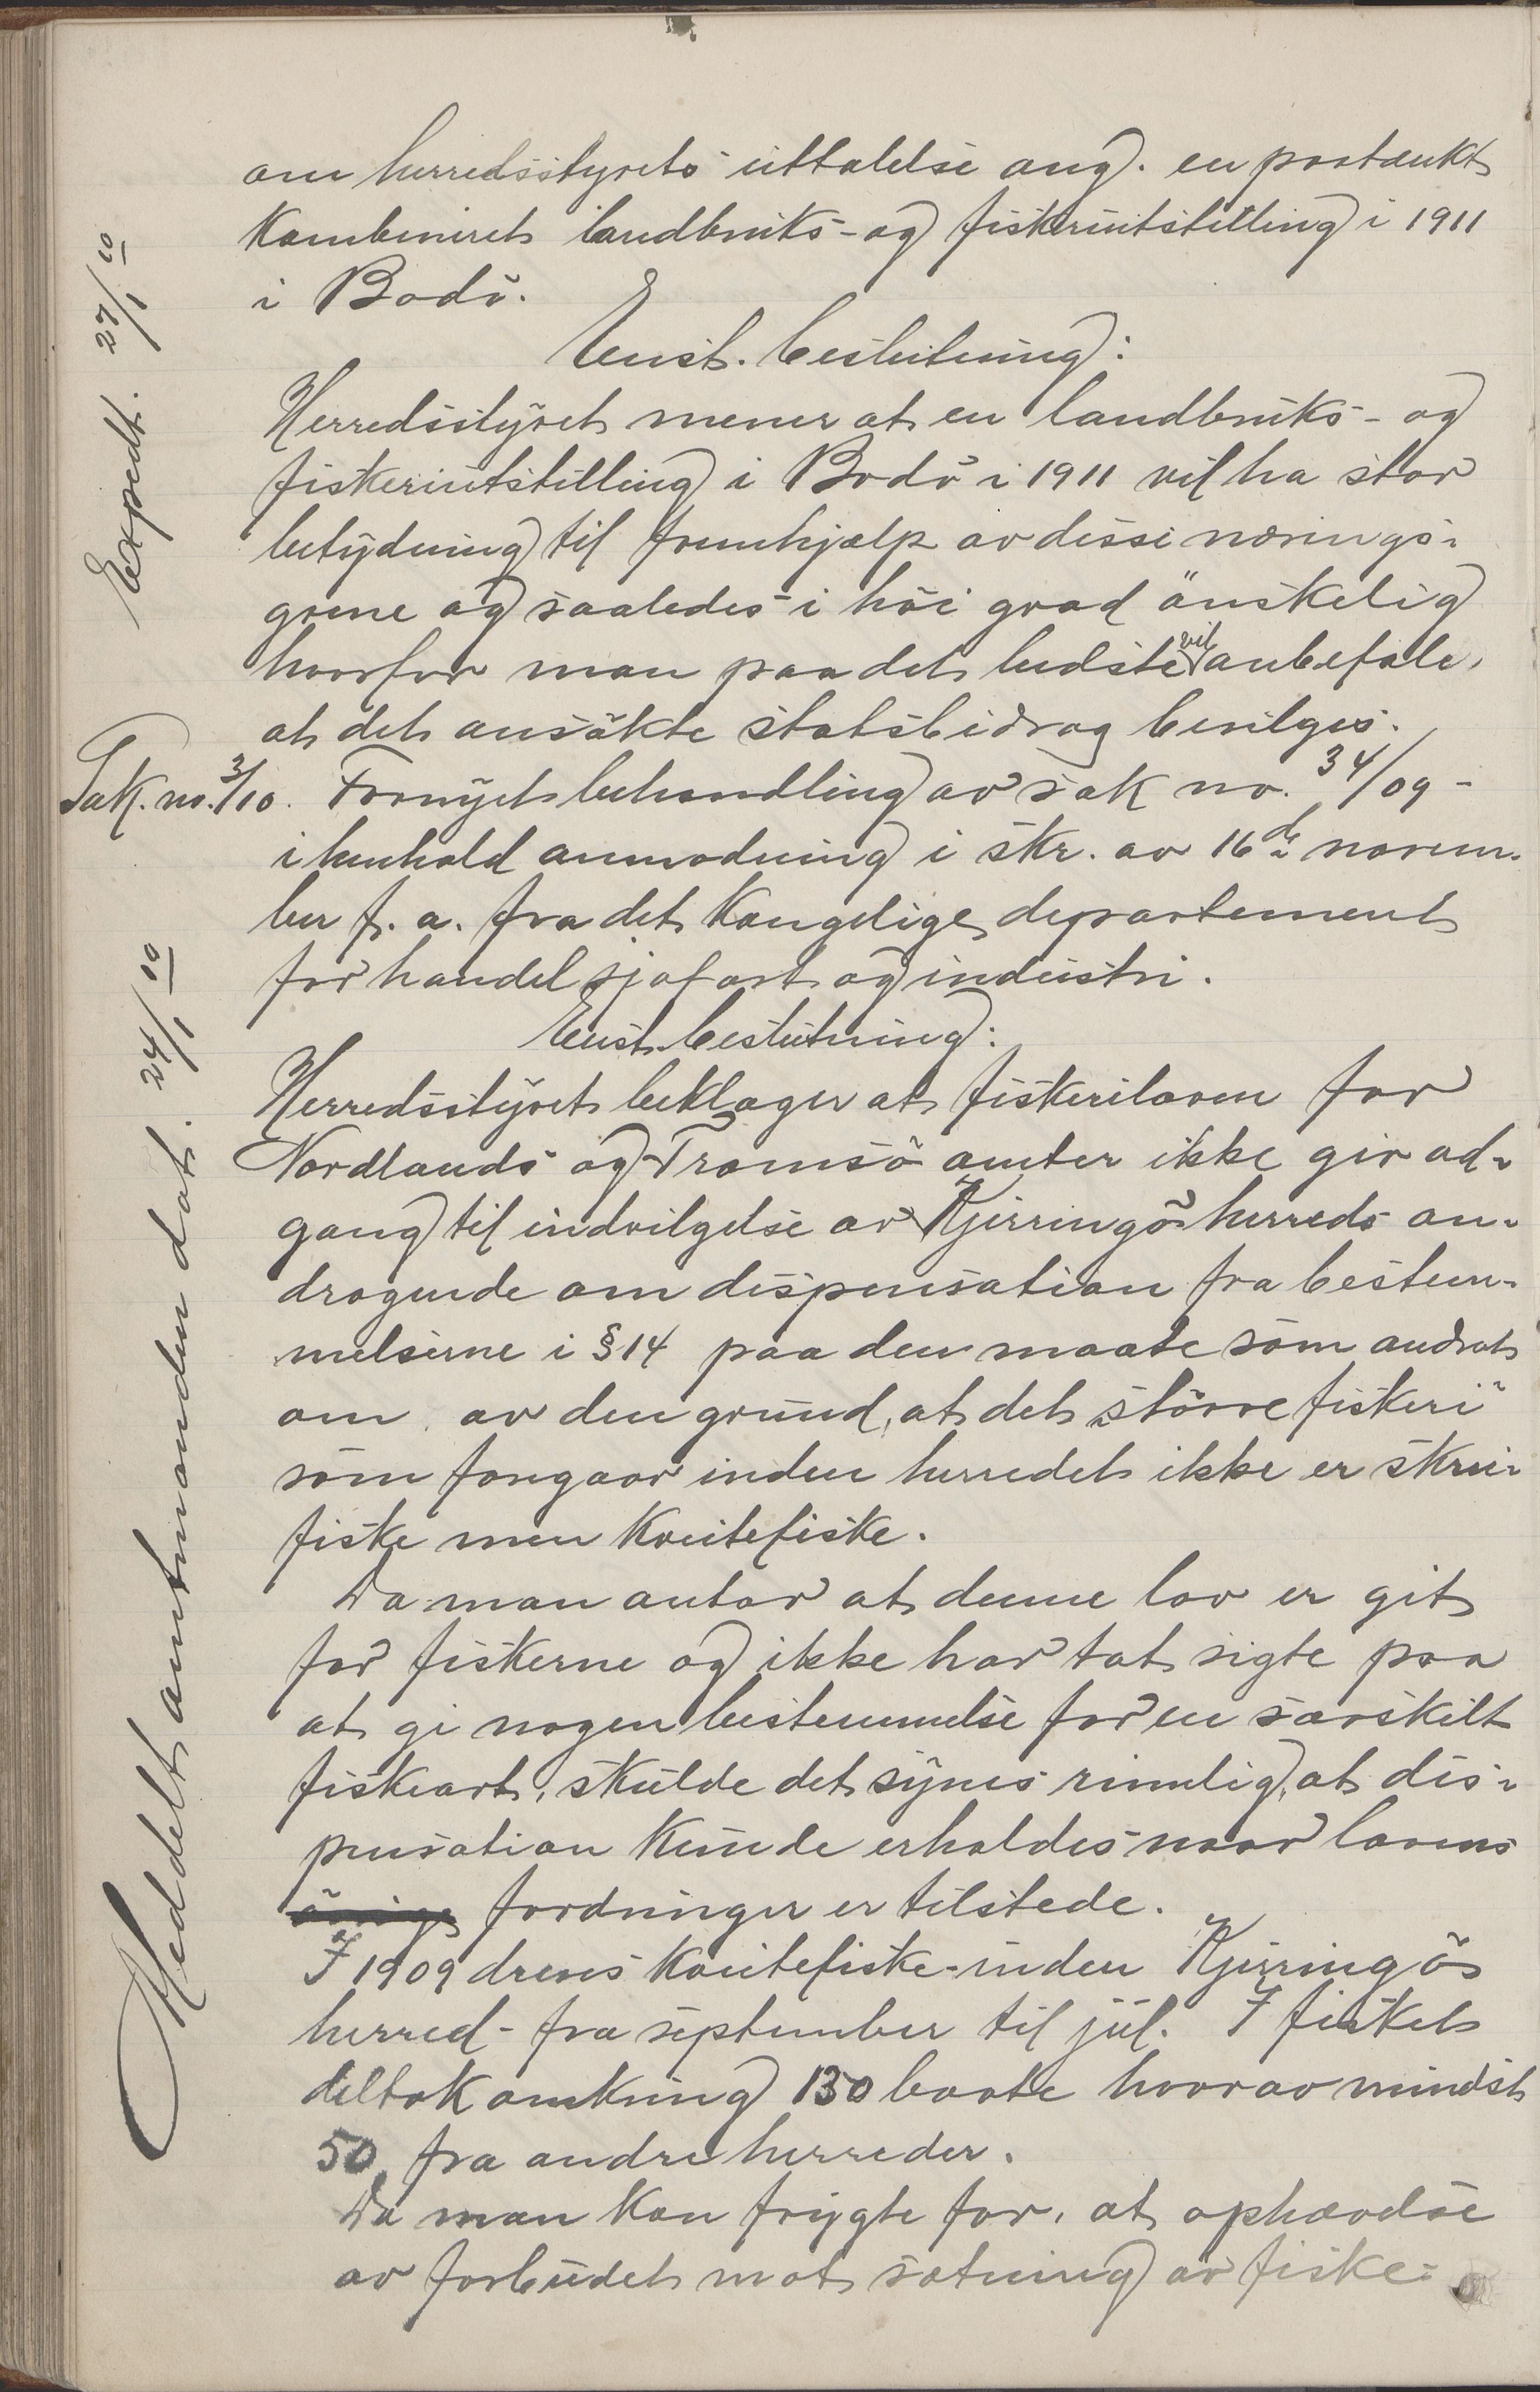 om herredsstyrets uttalelse ang. en påtænkt
kombineret landbruks- og fiskeriutstilling i 1911
i Bodö.
Enst. beslutning:
Herredsstyret mener at en landbruks- og
fiskeriutstilling i Bodö i 1911 vil ha stor
betydning til fremhjælp av disse nærings-
grene og saaledes i höi grad önskelig
hvorfor man paa det bedste vil anbefale,
at det ansökte statsbidrag bevilges.
Sak. no. 3/10. Fornyet behandling av sak no. 34/09 -
i henhold anmodning i skr. av 16de novem-
ber f. a. fra det Kongelige departement
for handel sjøfart og industri.
Enst. beslutning:
Herredsstyret beklager at fiskeriloven for
Nordlands og Tromsö amter ikke gir ad-
gang til indvilgelse av Kjerringö herreds an-
dragende om dispensation fra bestem-
melserne i § 14 paa den maate som andrat
om av den grund, at det "större fiskeri"
som foregaar inden herredet ikke er skrei-
fiske men Kveitefiske.
Da man antar at denne lov er git
for fiskerne og ikke har tat sigte paa
at gi nogen bestemmelse for en særskilt
fiskeart, skulde det synes rimelig, at dis-
pensation kunde erholdes naar lovens
övrige fordringer er tilstede.
I 1909 dreves kveitefiske - inden Kjerringö
herred - fra september til jul. I fisket
deltok omkring 130 baate hvorav mindst
50 fra andre herreder.
Da man kan frygte for, at ophævelse
av forbudet mot sætning av fiske-
Expedt. 27/1 10
Meddelt amtmanden dat. 24/1 10